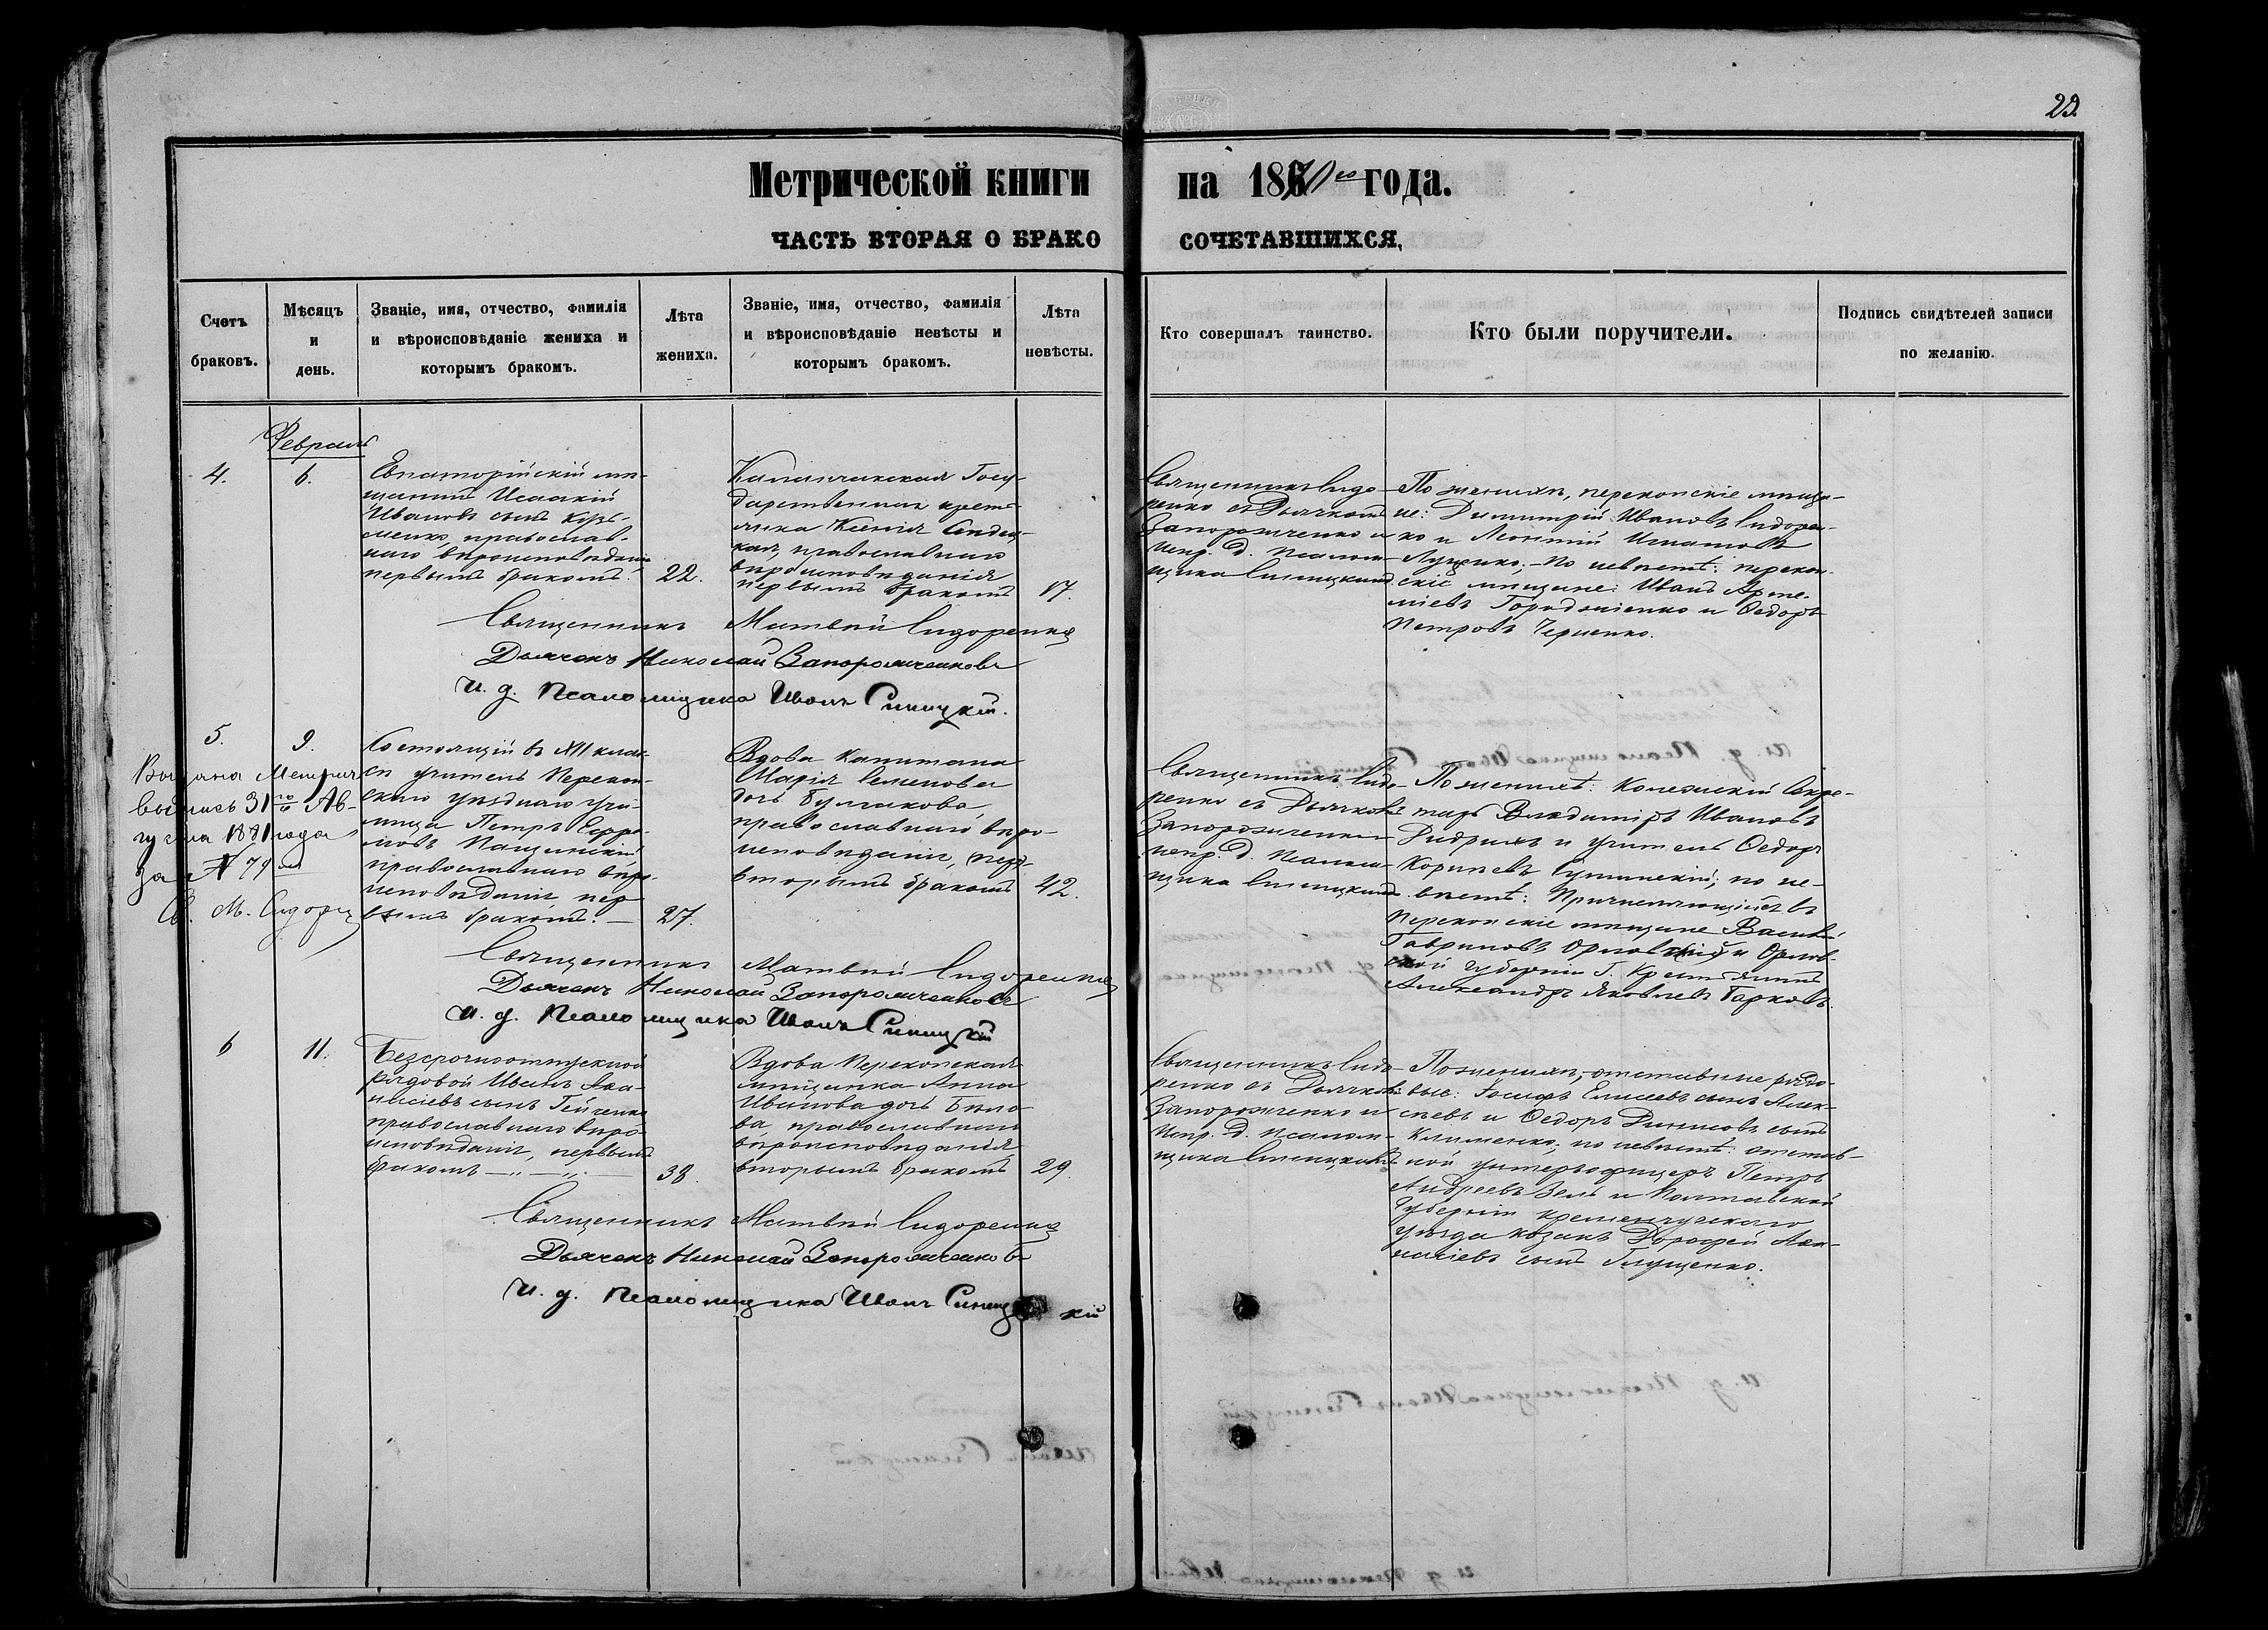 23.
Метрической книги на 1870го года.
ЧАСТЬ ВТОРАЯ О БРАКО СОЧЕТАВШИХСЯ,
Счетъ
браковъ.
Мѣсяцъ
и
день.
Званіе, имя, отчество, фамилія
и вѣроисповѣданіе жениха и
которымъ бракомъ.
Лѣта
жениха.
Званіе, имя, отчество, фамилія
и вѣроисповѣданіе невѣсты и
которымъ бракомъ.
Лѣта
невѣсты.
Кто совершалъ таинство.
Кто были поручители.
Подпись свидѣтелей записи
по желанію.
Февраль
4.
6.
Евпаторійскій мѣ-
щанинъ Исаакій
Ивановъ сынъ Кузь-
менко, православ-
наго вѣроисповѣданія
первымъ бракомъ.
22.
Госу-
дарственная кресть-
янка Ксенія
кая, православнаго
вѣроисповѣданія
первымъ бракомъ
17.
Священникъ Сидо-
ренко съ Дьячкомъ
Запорожченко и
испр. д. псалом-
щика Синицкимъ
По женихѣ, перекопскіе мѣща-
не: Димитрій Ивановъ Сидорен-
ко и Леонтій Игнатовъ
Луценко; по невѣстѣ: перекоп-
скіе мѣщане: Иванъ Арте-
міевъ Городниенко и Ѳедоръ
Петровъ Черненко.
Священникъ Матвѣй Сидоренко
Дьячекъ Николай Запорожченковъ
И. д. Псаломщика Иванъ Синицкій.
5.
9.
Выдана Метрич.
выпись 31го Ав-
густа 1881 года
за № 79м
С. М. Сидорен
Состоящій въ XII клас-
сѣ учитель Перекоп-
скаго уѣзднаго учи-
лища Петръ Ефре-
мовъ
православнаго вѣро-
исповѣданія, пер-
вымъ бракомъ. —
27.
Вдова Капитана
Марія Семенова
дочь Булгакова,
православнаго вѣро-
исповѣданія,
вторымъ бракомъ
42.
Священникъ Сидо-
ренко съ Дьячкомъ
Запорожченко
испр. д. псалом-
щика Синицкимъ
По женихѣ: Колежскій Секре-
тарь Владиміръ Ивановъ
и учитель Ѳедоръ
по не-
вѣстѣ: въ
Перекопскіе мѣщане Василій
Гавриловъ Орловскій и Орлов-
ской губерніи Г. Крестьянинъ
Александръ Яковлевъ
Священникъ Матвѣй Сидоренко
Дьячекъ Николай Запорожченковъ
И. д. Псаломщика Иванъ Синицкій
6
11.
Безсрочноотпускной
рядовой Иванъ Аѳа-
насіевъ сынъ
православнаго вѣро-
исповѣданія, первымъ
бракомъ — „ — „ —
38.
Вдова Перекопская
мѣщанка Анна
Иванова дочь Бѣло-
ва, православнаго
вѣроисповѣданія,
вторымъ бракомъ
29.
Священникъ Сидо-
ренко съ Дьячкомъ
Запорожченко и
испр. д. псалом-
щика Синицкимъ
По женихѣ, отставные рядо-
вые: Іосифъ Елисеевъ сынъ Алек-
сѣевъ и Ѳедоръ Денисовъ сынъ
Клименко; по невѣстѣ: отстав-
ной унтеръофицеръ Петръ
Андреевъ и Полтавской
Губерніи Кременчугскаго
уѣзда козакъ Дорофей Аѳа-
насіевъ сынъ Глущенко.
Священникъ Матвѣй Сидоренко
Дьячекъ Николай Запорожченковъ
И. д. Псаломщика Иванъ Синицкій